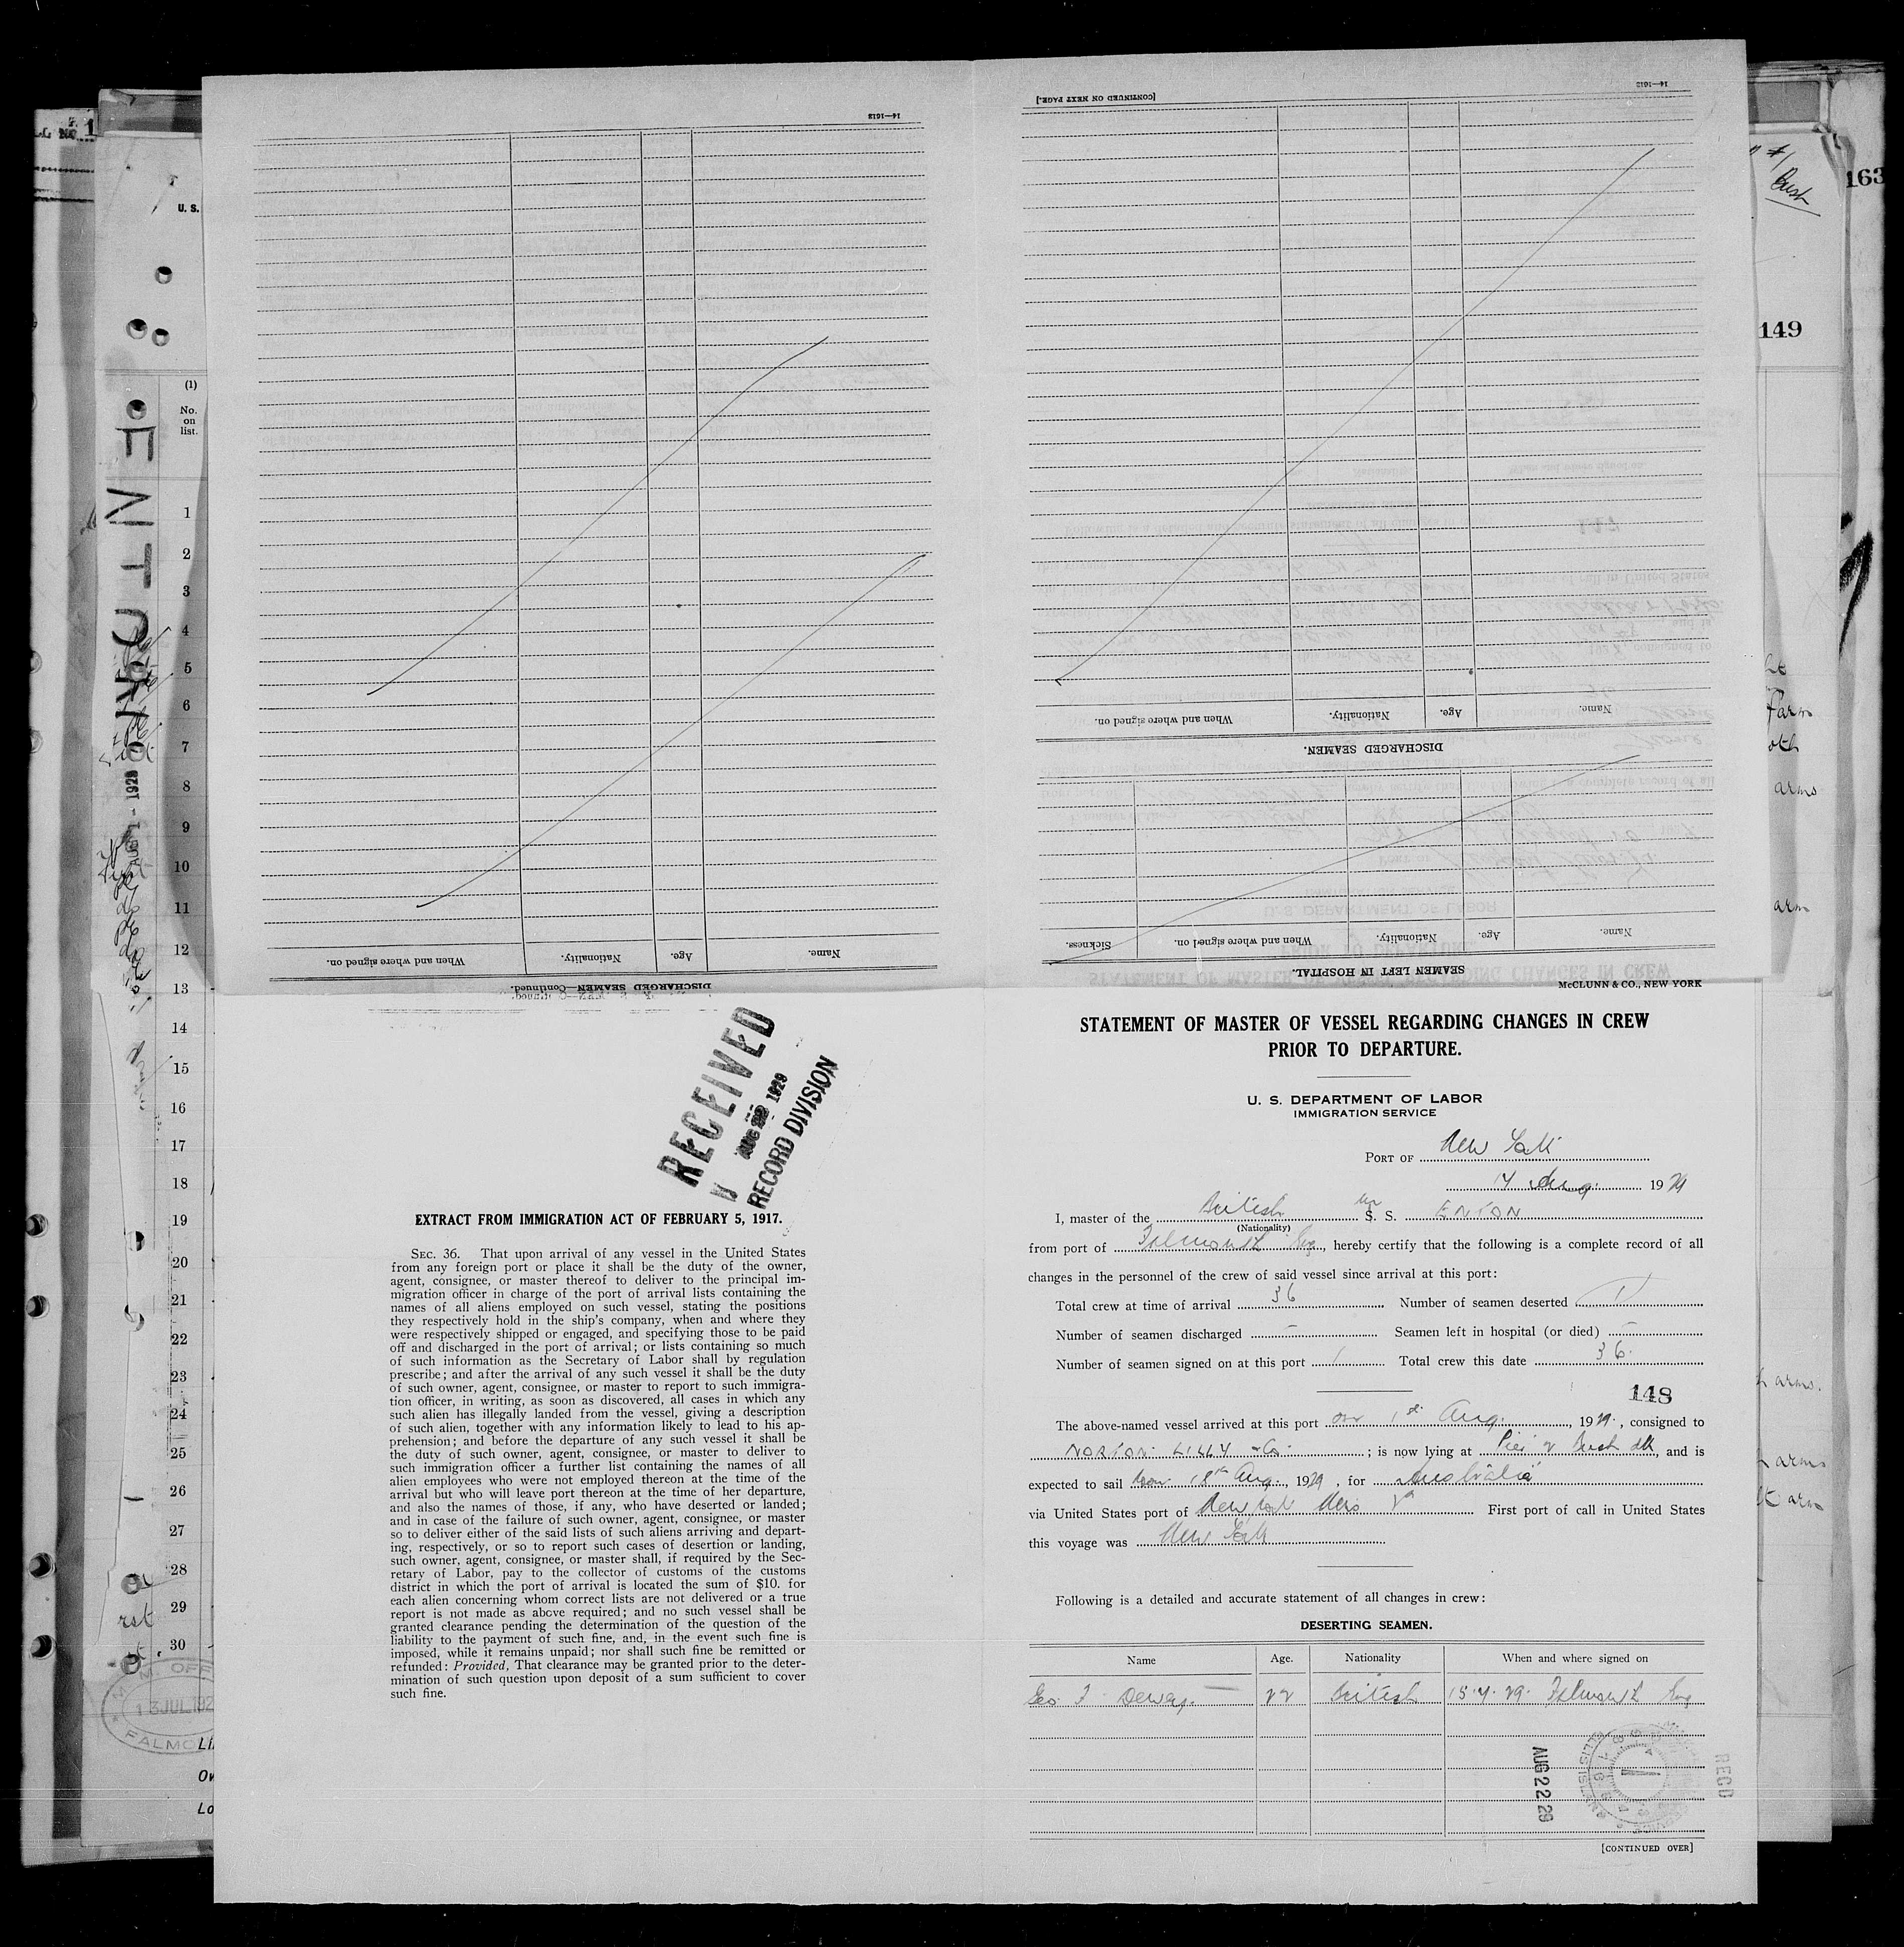 [CONTINUED ON NEXT PAGE.]
14—1613
14—1613
Name.
Age.
Nationality.
When and where signed on.
DISCHARGED SEAMEN.
Name.
Age.
Nationality.
When and where signed on.
Sickness.
SEAMEN LEFT IN HOSPITAL.
Name.
Age.
Nationality.
When and where signed on.
DISCHARGED SEAMEN—Continued.
163
149
U. S.
(1)
No.
on
list.
1
2
3
4
5
6
7
8
9
10
11
12
13
14
15
16
17
18
19
20
21
22
23
24
25
26
27
28
29
30
RECEIVED
AUG 22 1929
RECORD DIVISION
EXTRACT FROM IMMIGRATION ACT OF FEBRUARY 5, 1917.
SEC. 36. That upon arrival of any vessel in the United States
from any foreign port or place it shall be the duty of the owner,
agent, consignee, or master thereof to deliver to the principal im-
migration officer in charge of the port of arrival lists containing the
names of all aliens employed on such vessel, stating the positions
they respectively hold in the ship's company, when and where they
were respectively shipped or engaged, and specifying those to be paid
off and discharged in the port of arrival; or lists containing so much
of such information as the Secretary of Labor shall by regulation
prescribe; and after the arrival of any such vessel it shall be the duty
of such owner, agent, consignee, or master to report to such immigra-
tion officer, in writing, as soon as discovered, all cases in which any
such alien has illegally landed from the vessel, giving a description
of such alien, together with any information likely to lead to his ap-
prehension; and before the departure of any such vessel it shall be
the duty of such owner, agent, consignee, or master to deliver to
such immigration officer a further list containing the names of all
alien employees who were not employed thereon at the time of the
arrival but who will leave port thereon at the time of her departure,
and also the names of those, if any, who have deserted or landed;
and in case of the failure of such owner, agent, consignee, or master
so to deliver either of the said lists of such aliens arriving and depart-
ing, respectively, or so to report such cases of desertion or landing,
such owner, agent, consignee, or master shall, if required by the Sec-
retary of Labor, pay to the collector of customs of the customs
district in which the port of arrival is located the sum of $10. for
each alien concerning whom correct lists are not delivered or a true
report is not made as above required; and no such vessel shall be
granted clearance pending the determination of the question of the
liability to the payment of such fine, and, in the event such fine is
imposed, while it remains unpaid; nor shall such fine be remitted or
refunded: Provided, That clearance may be granted prior to the deter-
mination of such question upon deposit of a sum sufficient to cover
such fine.
McCLUNN & CO., NEW YORK
STATEMENT OF MASTER OF VESSEL REGARDING CHANGES IN CREW
PRIOR TO DEPARTURE.
U. S. DEPARTMENT OF LABOR
IMMIGRATION SERVICE
PORT OF New York
17 Aug. 1929
I, master of the British S. S. ENTON
(Nationality)
from port of Falmouth Eng, hereby certify that the following is a complete record of all
changes in the personnel of the crew of said vessel since arrival at this port:
Total crew at time of arrival 36 Number of seamen deserted 1
Number of seamen discharged — Seamen left in hospital (or died) —
Number of seamen signed on at this port 1 Total crew this date 36.
148
The above-named vessel arrived at this port on 1st Aug. , 1929 , consigned to
NORTON LILLY & Co. ; is now lying at Pier 2 Bush dk, and is
expected to sail 18th Aug., 1929 , for Australia
via United States port of New York First port of call in United States
this voyage was New York
Following is a detailed and accurate statement of all changes in crew:
DESERTING SEAMEN.
Name Age. Nationality When and where signed on
Geo. F. Dewey. 22 British 15.7.29. Falmouth Eng
AUG 22 29
RECD
[CONTINUED OVER]